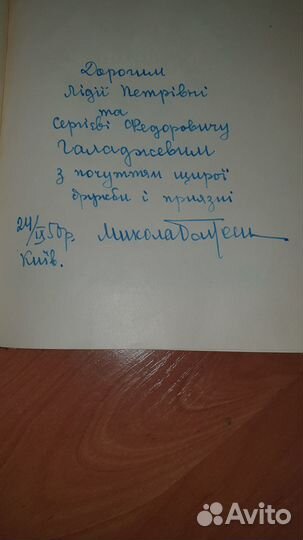 Дорогим
Лідії Петрівні
та
Сергієві Федоровичу
Галаджевим
з почуттям щирої
дружби і приязні
24/IX 50 р. Микола
Київ.
Avito